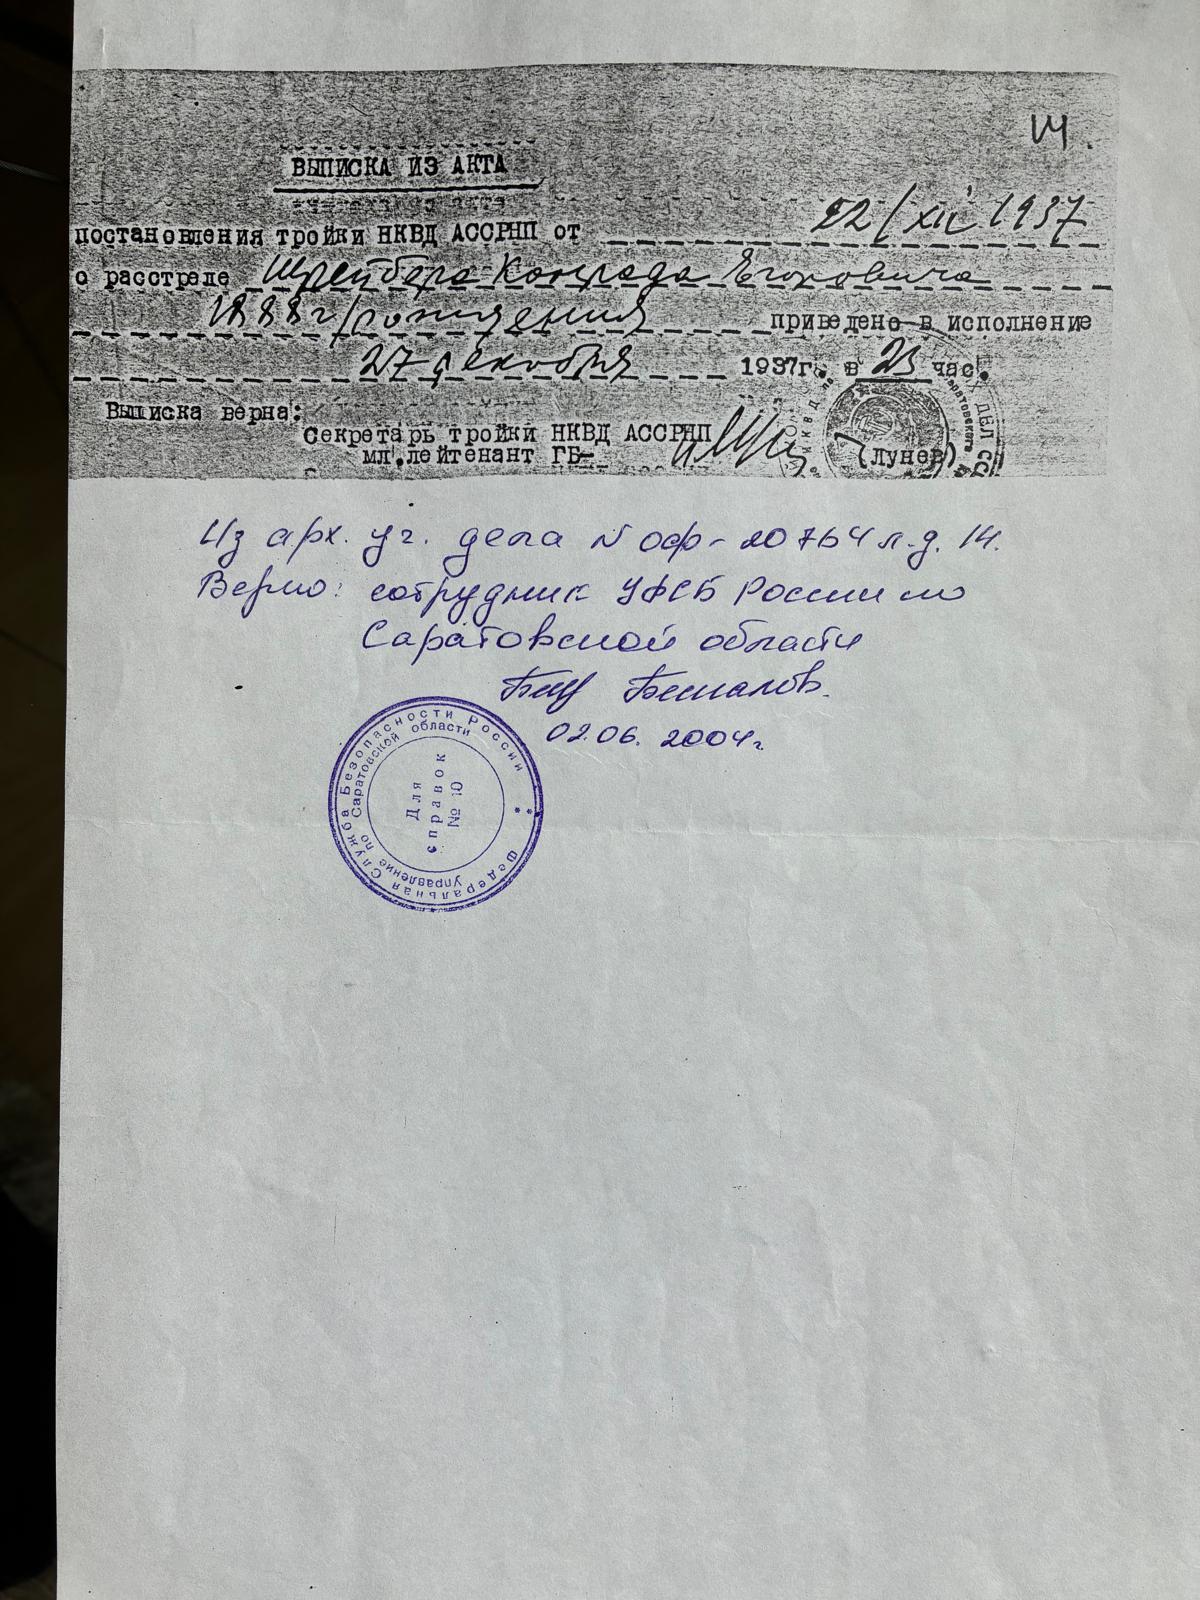 14.
ВЫПИСКА ИЗ АКТА
постановления тройки НКВД АССРНП от 22/XII 1937
о расстреле Шрейбера Конрада Егоровича
1888г/рождения приведено в исполнение
27 декабря 1937г. в 23 час.
Выписка верна:
Секретарь тройки НКВД АССРНП
мл.лейтенант ГБ- (Лунев)
Из арх. уг. дела N оф-20764 л.д. 14.
Верно: сотрудник УФСБ России по
Саратовской области
Бисалов.
02.06.2004г.
Федеральная Служба Безопасности России
Управление по Саратовской области
Для
справок
№ 10